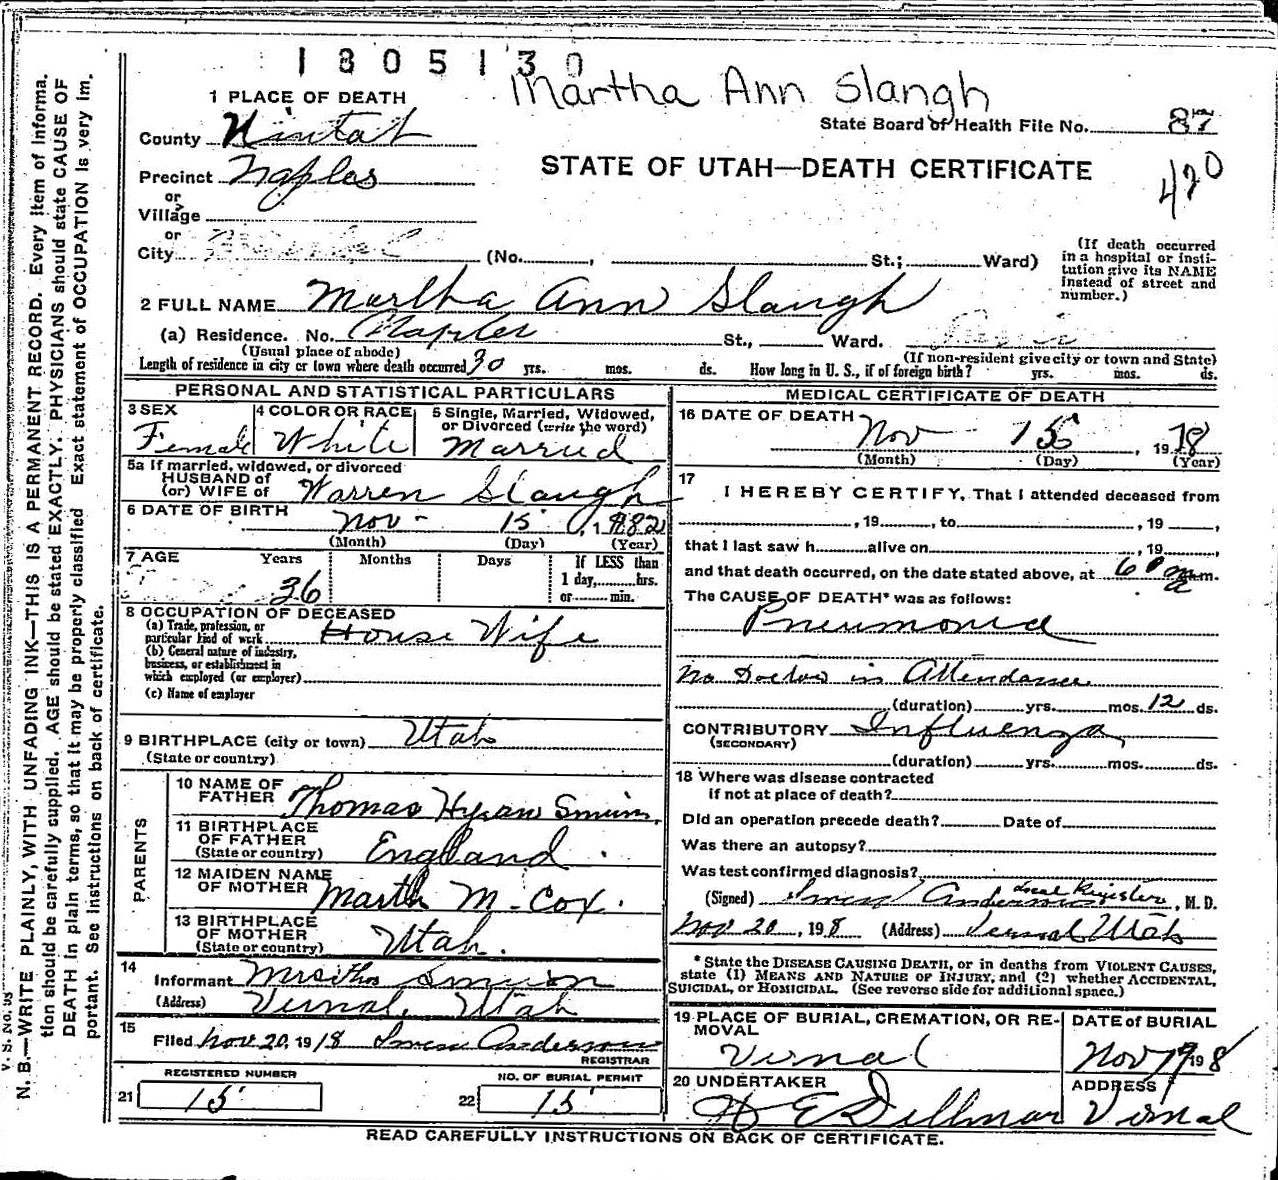 1305130
Martha Ann Slangh
1 PLACE OF DEATH
State Board of Health File No. 87
County Uintah
STATE OF UTAH—DEATH CERTIFICATE
420
Precinct Naples
or
Village
or
City (No. , St.; Ward)
(If death occurred in a hospital or institution give its NAME instead of street and number.)
2 FULL NAME Martha Ann Slaugh
(a) Residence. No. Naples St., Ward.
(Usual place of abode) (If non-resident give city or town and State)
Length of residence in city or town where death occurred 30 yrs. mos. ds. How long in U. S., if of foreign birth? yrs. mos. ds.
PERSONAL AND STATISTICAL PARTICULARS
3 SEX 4 COLOR OR RACE 5 Single, Married, Widowed, or Divorced (write the word)
Female White Married
5a If married, widowed, or divorced
HUSBAND of
(or) WIFE of Warren Slaugh
6 DATE OF BIRTH
Nov - 15 , 1882
(Month) (Day) (Year)
7 AGE Years Months Days If LESS than
1 day, hrs.
36 or min.
8 OCCUPATION OF DECEASED
(a) Trade, profession, or
particular kind of work House Wife
(b) General nature of industry,
business, or establishment in
which employed (or employer)
(c) Name of employer
9 BIRTHPLACE (city or town) Utah
(State or country)
PARENTS
10 NAME OF
FATHER Thomas Hyrum
11 BIRTHPLACE
OF FATHER
(State or country) England
12 MAIDEN NAME
OF MOTHER Martha M. Cox.
13 BIRTHPLACE
OF MOTHER
(State or country) Utah.
14
Informant
(Address) Vernal, Utah
15
Filed Nov 20, 1918 Anderson
REGISTRAR
REGISTERED NUMBER NO. OF BURIAL PERMIT
21 15 22 15
MEDICAL CERTIFICATE OF DEATH
16 DATE OF DEATH
Nov 15 , 1918
(Month) (Day) (Year)
17
I HEREBY CERTIFY, That I attended deceased from
, 19 , to , 19 ,
that I last saw h alive on , 19 ,
and that death occurred, on the date stated above, at 6 m.
The CAUSE OF DEATH* was as follows:
Pneumonia
No Doctor in Attendance
(duration) yrs. mos. 12 ds.
CONTRIBUTORY Influenza
(SECONDARY)
(duration) yrs. mos. ds.
18 Where was disease contracted
if not at place of death?
Did an operation precede death? Date of
Was there an autopsy?
Was test confirmed diagnosis?
Local Register
(Signed) Anderson , M. D.
Nov 20 , 1918 (Address) Vernal Utah
* State the DISEASE CAUSING DEATH, or in deaths from VIOLENT CAUSES,
state (1) MEANS AND NATURE OF INJURY, and (2) whether ACCIDENTAL,
SUICIDAL, or HOMICIDAL. (See reverse side for additional space.)
19 PLACE OF BURIAL, CREMATION, OR RE-
MOVAL
Vernal
DATE of BURIAL
Nov 19 1918
20 UNDERTAKER ADDRESS
Dillman Vernal
READ CAREFULLY INSTRUCTIONS ON BACK OF CERTIFICATE.
V. S. No. 98
N. B.—WRITE PLAINLY, WITH UNFADING INK—THIS IS A PERMANENT RECORD. Every item of informa-
tion should be carefully supplied. AGE should be stated EXACTLY. PHYSICIANS should state CAUSE OF
DEATH in plain terms, so that it may be properly classified. Exact statement of OCCUPATION is very im-
portant. See instructions on back of certificate.